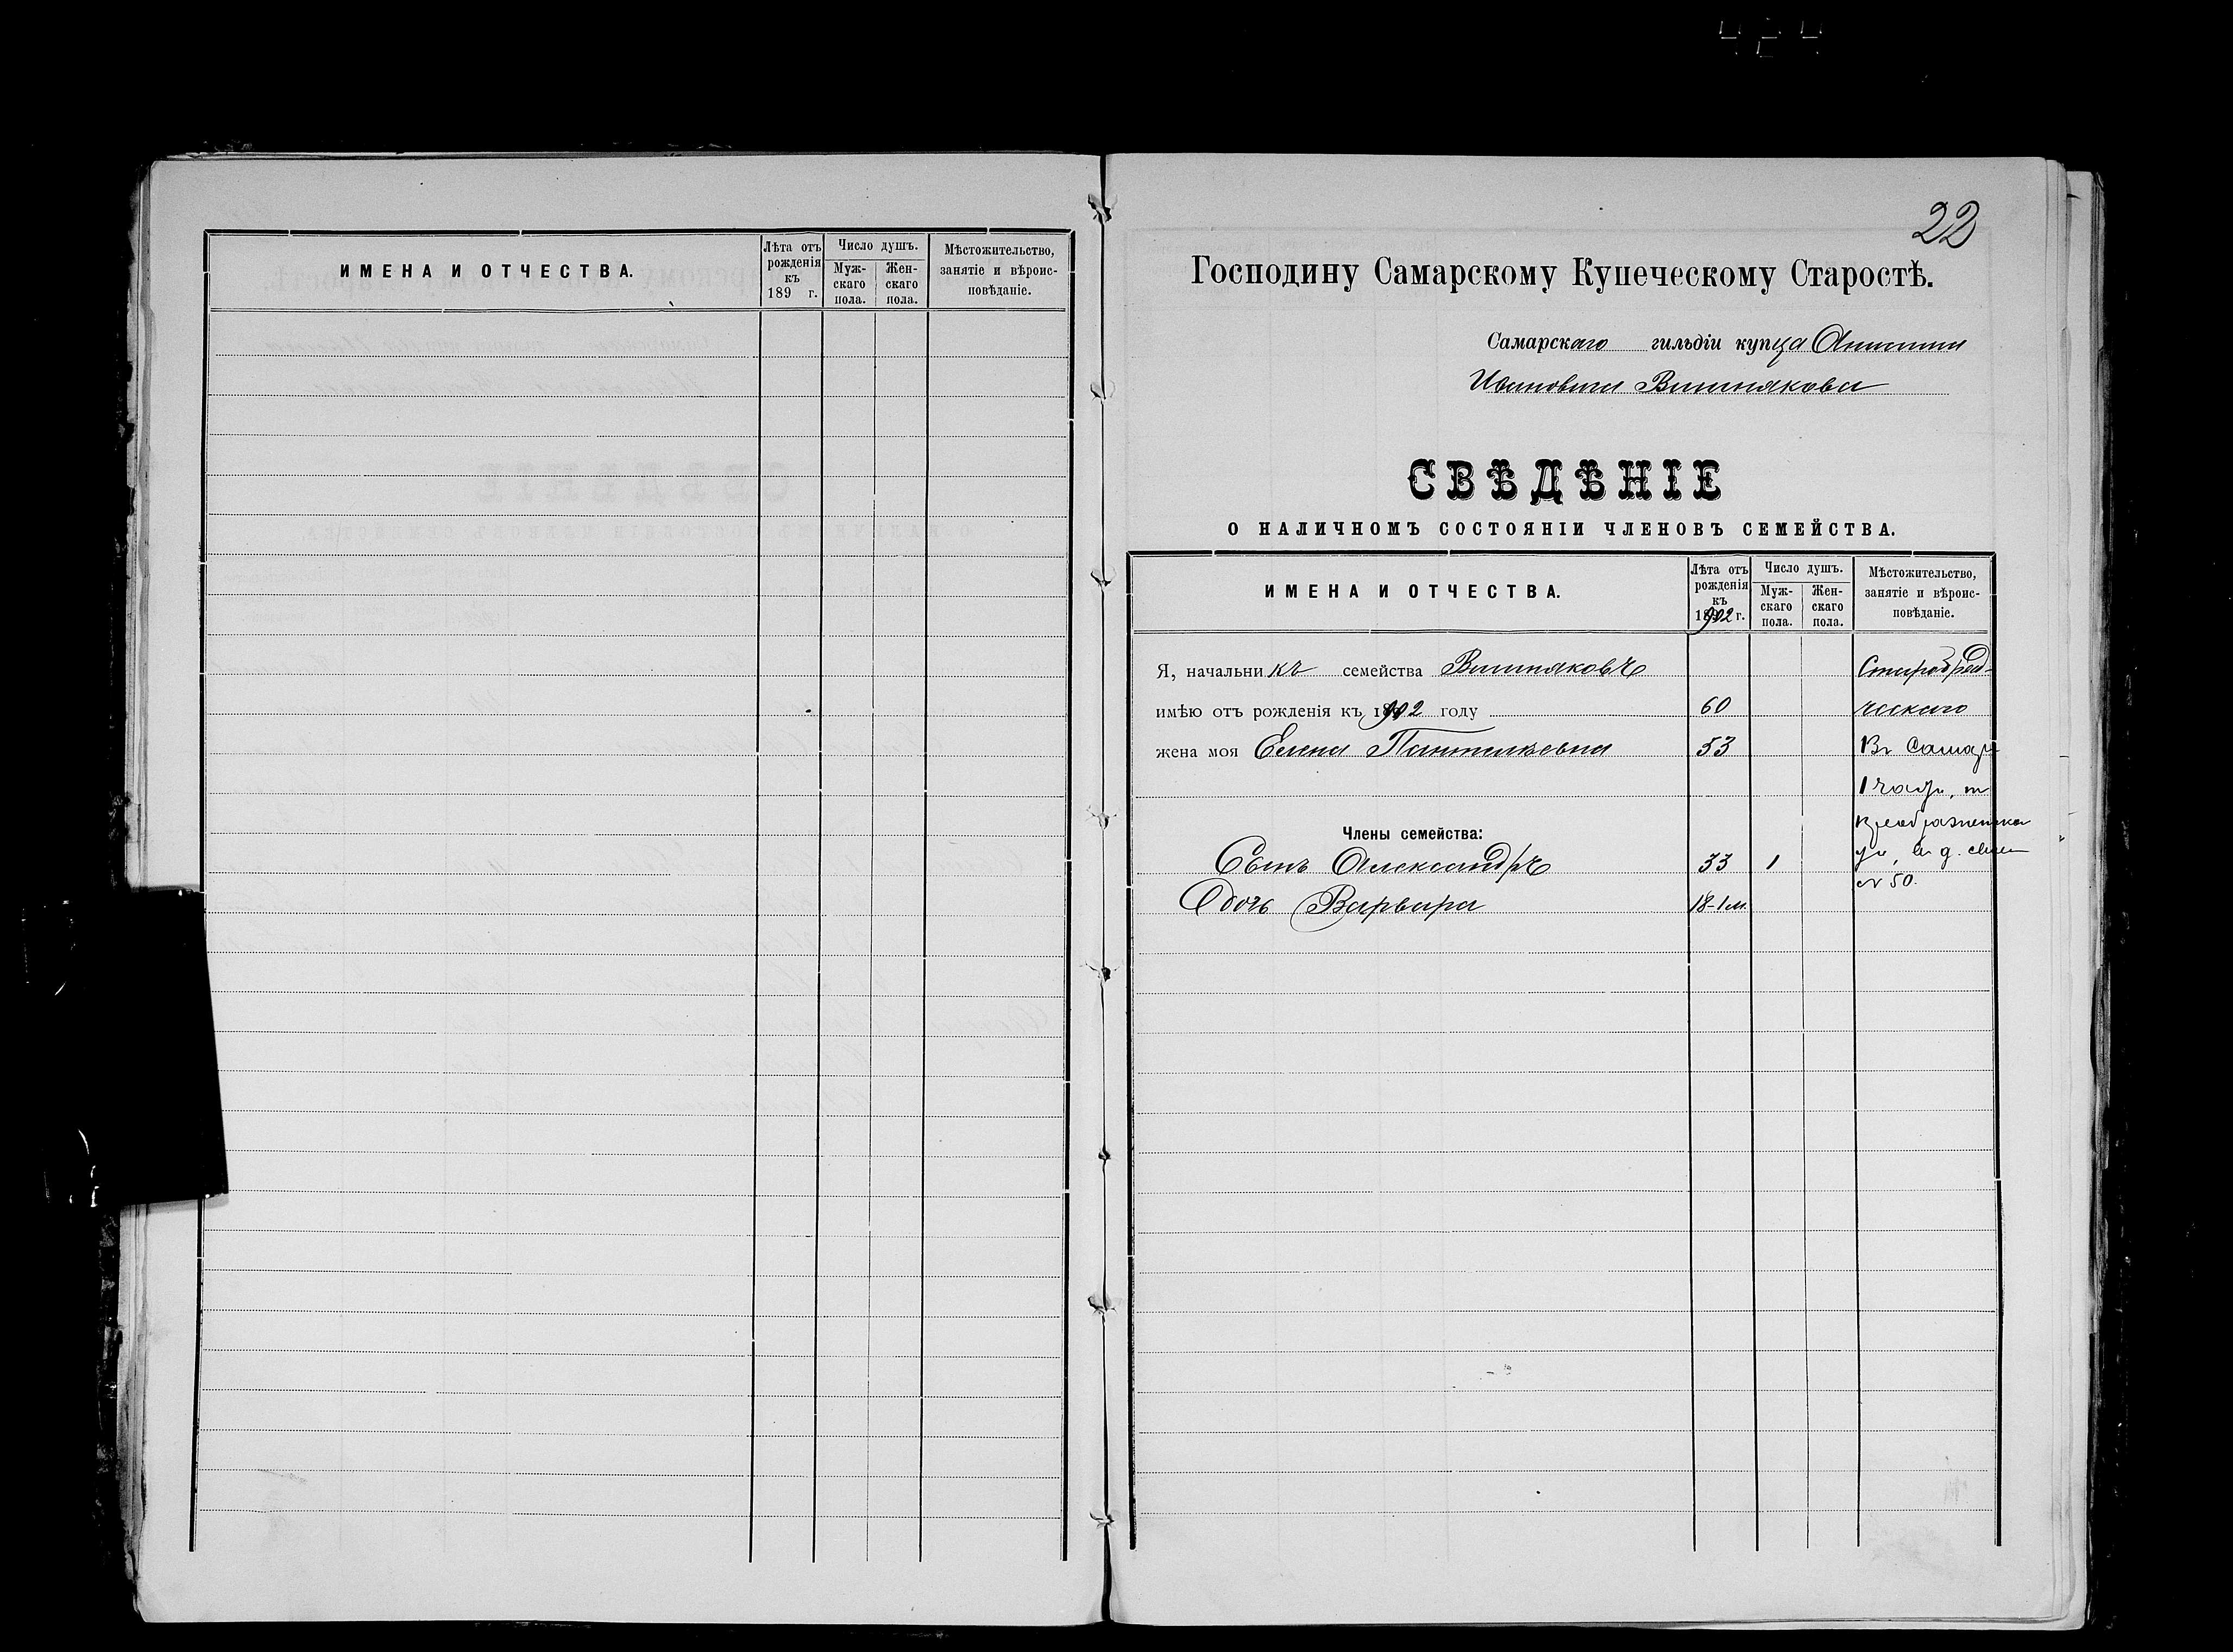 ИМЕНА И ОТЧЕСТВА.
Лѣта отъ рожденія къ 189 г.
Число душъ.
Муж-скаго пола.
Жен-скаго пола.
Мѣстожительство, занятіе и вѣроис-повѣданіе.
22
Господину Самарскому Купеческому Старостѣ.
Самарскаго гильдіи купца
Ивановича Вишнякова
СВѢДѢНІЕ
О НАЛИЧНОМЪ СОСТОЯНІИ ЧЛЕНОВЪ СЕМЕЙСТВА.
ИМЕНА И ОТЧЕСТВА.
Лѣта отъ рожденія къ 1902 г.
Число душъ.
Муж-скаго пола.
Жен-скаго пола.
Мѣстожительство, занятіе и вѣроис-повѣданіе.
Я, начальникъ семейства Вишняковъ
имѣю отъ рожденія къ 1902 году 60
жена моя Елена 53 Въ Самарѣ
1 части,
Члены семейства:
Сынъ Александръ 33 1
№ 50.
Дочь Варвара 18-1 м.